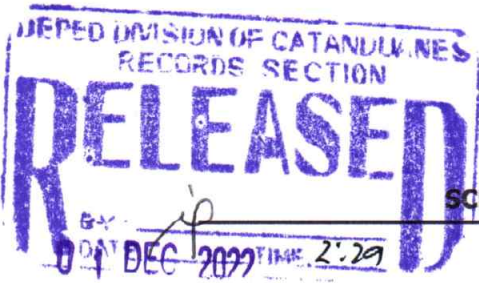 DEPED DIVISION OF CATANDUANES
RECORDS SECTION
RELEASED
SC
BY:
DATE 01 DEC 2022 TIME: 2:29